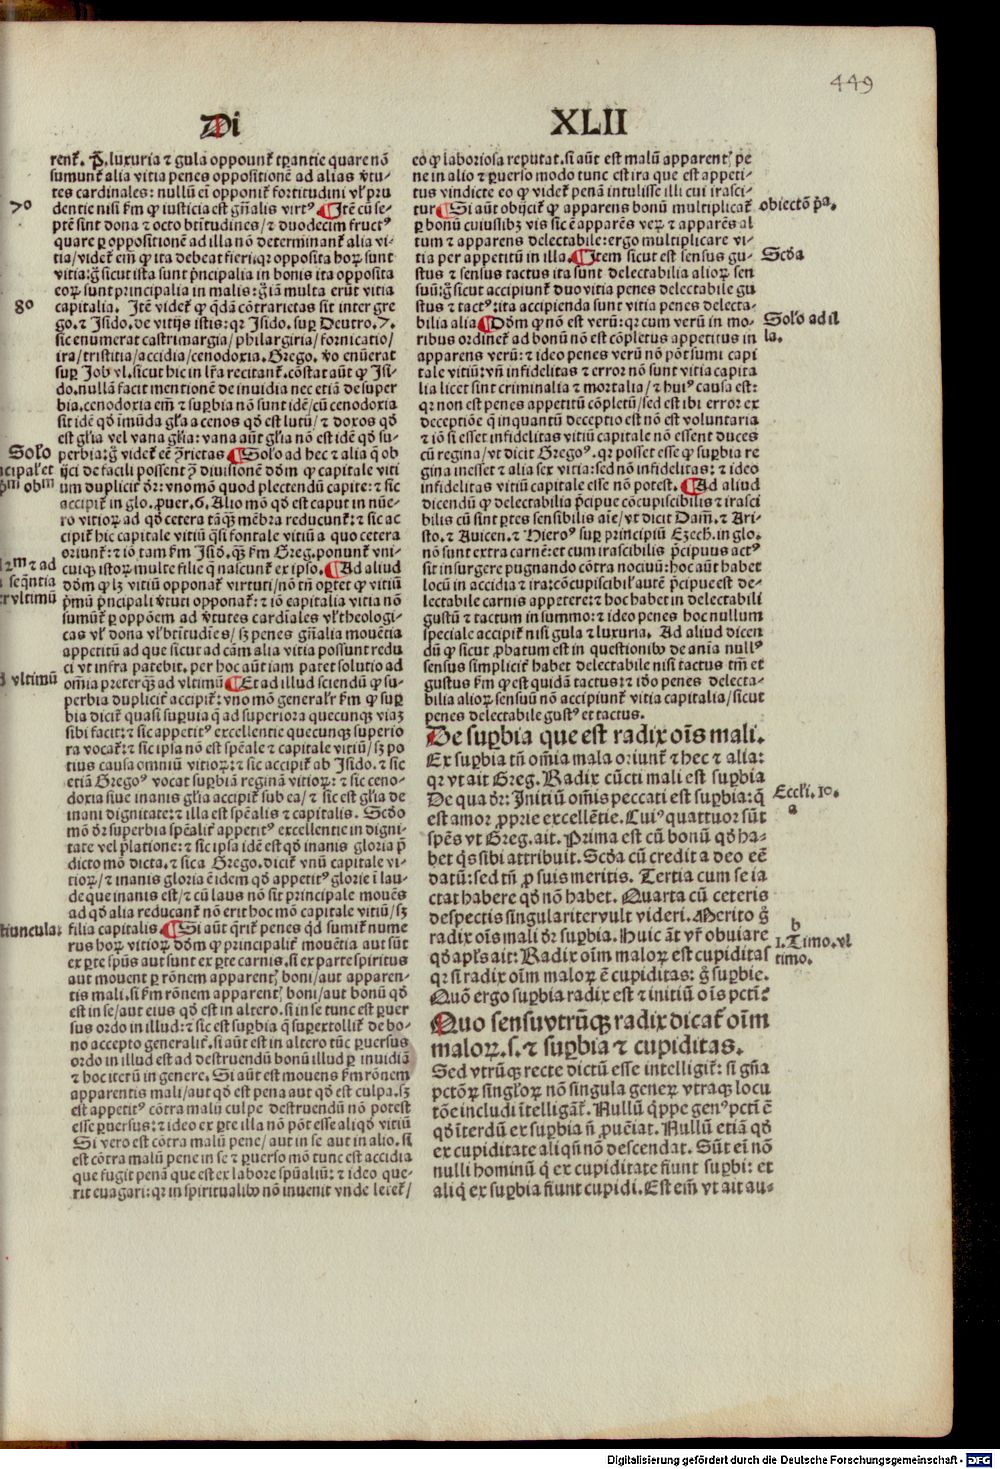 449
Di
XLII
renť. P̃. luxuria ⁊ gula opponunť tp̃antie quare nõ
sumunť alia vitia penes oppositionẽ ad alias ṽtu-
tes cardinales: nullũ eĩ opponiť fortitudini vľ pru
dentie nisi ẜm ꝙ iusticia est gñalis virtꝰ ¶Itẽ cũ se-
ptẽ sint dona ⁊ octo btĩtudines/ ⁊ duodecim fructꝰ
quare ꝑ oppositionẽ ad illa nõ determinanť alia vi-
tia/videť eñi ꝙ ita debeat fieri: qꝛ opposita hoꝝ sunt
vitia: g̃ sicut ista sunt pͥncipalia in bonis ita opposita
eoꝝ sunt principalia in malis: g̃ iam multa erũt vitia
capitalia. Itẽ videť ꝙ q̃dã cõtrarietas sit inter gre
go. ⁊ Isido. de vitijs istis: qꝛ Isido. suꝑ Deutro. 7.
sic enumerat castrimargia/ philargiria/ fornicatio/
ira/ tristitia/ accidia/ cenodoxia. Grego. ṽo enũerat
suꝑ Job vl. sicut hic in lr̃a recitanť. cõstat aũt ꝙ Jsi-
do. nullã facit mentionẽ de inuidia nec etiã de super
bia. cenodoxia em̃ ⁊ suꝑbia nõ sunt idẽ/ cũ cenodoxia
sit idẽ qď imũda gľa a cenos qď est lutũ/ ⁊ doxos qď
est gľia vel vana gľia: vana aũt gľia nõ est idẽ qď su-
perbia: g̃ videť eẽ ↄ̃rietas ¶Solo ad hec ⁊ alia q̃ ob
ijci de facili possent ꝑ diuisionẽ dõm ꝙ capitale viti
um dupliciť dr̃: vno mõ quod plectendũ capite: ⁊ sic
accipiť in glo. ꝓuer. 6. Alio mõ qď est caput in nũe-
ro vitioꝝ ad qď cetera tãꝙ̃ mẽbra reducunť: ⁊ sic ac
cipiť hic capitale vitiũ q̃si fontale vitiũ a quo cetera
oriunť: ⁊ iõ tam ẜm Isid. ꝙ̃ ẜm Greg. ponunť vni-
cuiqꝫ istoꝝ multe filie q̃ nascunť ex ipso. ¶Ad aliud
dõm ꝙ lꝫ vitiũ opponať virtuti/ nõ tñ oꝑtet ꝙ vitiũ
pͥmũ pͥncipali ṽtuti opponať: ⁊ iõ capitalia vitia nõ
sumũť ꝑ oppõem ad ṽtutes cardĩales vľ theologi-
cas vľ dona vľ btĩtudĩes/ sꝫ penes gñalia mouẽtia
appetitũ ad que sicut ad cãm alia vitia possunt redu
ci vt infra patebit. per hoc aũt iam patet solutio ad
om̃ia preterqꝫ̃ ad vltimũ ¶Et ad illud sciendũ ꝙ su-
perbia dupliciť accipiť: vno mõ generaľr ẜm ꝙ suꝑ
bia diciť quasi suꝑuia q̃ ad superiora quecunqꝫ viaꝫ
sibi facit: ⁊ sic appetitꝰ excellentie quecunqꝫ superio
ra vocať: ⁊ sic ipsa nõ est sp̃eale ⁊ capitale vitiũ/ sꝫ po
tius causa omniũ vitioꝝ: ⁊ sic accipiť ab Isido. ⁊ sic
etiã Gregoꝰ vocat suꝑbiã reginã vitioꝝ: ⁊ sic ceno-
doxia siue inanis gľia accipiť sub ea/ ⁊ sic est gľia de
inani dignitate: ⁊ illa est sp̃ealis ⁊ capitalis. Scďo
mõ dr̃ superbia sp̃ealiť appetitꝰ excellentie in digni
tate vel p̃latione: ⁊ sic ipsa idẽ est qď inanis gloria p̃
dicto mõ dicta. ⁊ sic a Grego. diciť vnũ capitale vi-
tioꝝ/ ⁊ inanis gloria ẽ idem qď appetitꝰ glorie ĩ lau-
de que inanis est/ ⁊ cũ laus nõ sit principale mouẽs
ad qď alia reducanť nõ erit hoc mõ capitale vitiũ/ sꝫ
filia capitalis. ¶Si aũt q̃riť penes qď sumiť nume
rus hoꝝ vitioꝝ dõm ꝙ principaliť mouẽtia aut sũt
ex ꝑte spũs aut sunt ex ꝑte carnis. si ex parte spiritus
aut mouent ꝑ rõnem apparentꝭ boni/ aut apparen-
tis mali. si ẜm rõnem apparentꝭ boni/ aut bonũ qď
est in se/ aut eius qď est in altero. si in se tunc est ꝑuer
sus ordo in illud: ⁊ sic est suꝑbia q̃ suꝑextolliť de bo-
no accepto generaliť. si aũt est in altero tũc ꝑuersus
ordo in illud est ad destruendũ bonũ illud ꝑ inuidiã
⁊ hoc iterũ in genere. Si aũt est mouens ẜm rõnem
apparentis mali/ aut qď est pena aut qď est culpa. sꝫ
est appetitꝰ cõtra malũ culpe destruendũ nõ potest
esse ꝑuersus: ⁊ ideo ex ꝑte illa nõ põt esse aliqď vitiũ
Si vero est cõtra malũ pene/ aut in se aut in alio. si
est cõtra malũ pene in se ⁊ ꝑuerso mõ tunc est accidia
que fugit penã que est ex labore spũaliũ: ⁊ ideo que-
rit euagari: qꝛ in spiritualibꝰ nõ inuenit vnde leteť/
7º
8º
Solo
ncipalet
pͥm obm̃
l 2m̃ ⁊ ad
seq̃ntia
ꝛ vltimũ
d vltimũ
tiuncula:
eo ꝙ laboriosa reputat. si aũt est malũ apparentꝭ pe
ne in alio ⁊ ꝑuerso modo tunc est ira que est appeti-
tus vindicte eo ꝙ videť penã intulisse illi cui irasci-
tur ¶Si aũt obijciť ꝙ apparens bonũ multiplicať
ꝑ bonũ cuiuslibꝫ vis sic ẽ apparẽs veꝝ ⁊ apparẽs al
tum ⁊ apparens delectabile: ergo multiplicare vi-
tia per appetitũ in illa. ¶Item sicut est sensus gu-
stus ⁊ sensus tactus ita sunt delectabilia alioꝝ sen
suũ: g̃ sicut accipiunť duo vitia penes delectabile gu
stus ⁊ tactꝰ: ita accipienda sunt vitia penes delecta-
bilia alia ¶Dõm ꝙ nõ est verũ: qꝛ cum verũ in mo-
ribus ordineť ad bonũ nõ est cõpletus appetitus in
apparens verũ: ⁊ ideo penes verũ nõ põt sumi capi
tale vitiũ: vñ infidelitas ⁊ error nõ sunt vitia capita
lia licet sint criminalia ⁊ mortalia/ ⁊ huiꝰ causa est:
qꝛ non est penes appetitũ cõpletũ/ sed est ibi error ex
deceptiõe q̃ inquantũ deceptio est nõ est voluntaria
⁊ iõ si esset infidelitas vitiũ capitale nõ essent duces
cũ regina/ vt dicit Gregoꝰ. qꝛ posset esse ꝙ suꝑbia re
gina inesset ⁊ alia sex vitia: sed nõ infidelitas: ⁊ ideo
infidelitas vitiũ capitale esse nõ potest. ¶Ad aliud
dicendũ ꝙ delectabilia pͥcipue cõcupiscibilis ⁊ irasci
bilis cũ sint ꝑtes sensibilis aĩe/ vt dicit Dam̃. ⁊ Ari-
sto. ⁊ Auicen. ⁊ Hieroꝰ suꝑ principiũ Ezech. in glo.
nõ sunt extra carnẽ: et cum irascibilis pͥcipuus actꝰ
sit insurgere pugnando cõtra nociuũ: hoc aũt habet
locũ in accidia ⁊ ira: cõcupiscibiľ autẽ pͥcipue est de-
lectabile carnis appetere: ⁊ hoc habet in delectabili
gustũ ⁊ tactum in summo: ⁊ ideo penes hoc nullum
speciale accipiť nisi gula ⁊ luxuria. Ad aliud dicen
dũ ꝙ sicut ꝓbatum est in questionibꝰ de anĩa nullꝰ
sensus simpliciť habet delectabile nisi tactus tm̃ et
gustus ẜm ꝙ est quidã tactus: ⁊ iďo penes delecta-
bilia alioꝝ sensuũ nõ accipiunť vitia capitalia/ sicut
penes delectabile gustꝰ et tactus.
De suꝑbia que est radix oĩs mali.
Ex suꝑbia tñ om̃ia mala oriunť ⁊ hec ⁊ alia:
qꝛ vt ait Greg. Radix cũcti mali est suꝑbia
De qua dr̃: Initiũ om̃is peccati est suꝑbia: q̃
est amor ꝓprie excellẽtie. Cuiꝰ quattuor sũt
sp̃es vt Greg. ait. Prima est cũ bonũ qď ha-
bet q̃s sibi attribuit. Scďa cũ credit a deo eẽ
datũ: sed tñ ꝓ suis meritis. Tertia cum se ia
ctat habere qď nõ habet. Quarta cũ ceteris
despectis singulariter vult videri. Merito g̃
radix oĩs mali dr̃ suꝑbia. Huic ãt vr̃ obuiare
qď apľs ait: Radix oĩm maloꝝ est cupiditas
qꝛ si radix oĩm maloꝝ ẽ cupiditas: g̃ suꝑbie.
Quõ ergo suꝑbia radix est ⁊ initiũ oĩs pctĩ?
Quo sensu vtrũqꝫ radix dicať oĩm
maloꝝ. s. ⁊ suꝑbia ⁊ cupiditas.
Sed vtrũqꝫ recte dictũ esse intelligiť: si gña
pctõꝝ singľoꝝ nõ singula generꝝ vtraqꝫ locu
tõe includi ĩtelligãť. Nullũ q̃ppe genꝰ pctĩ ẽ
qď ĩterdũ ex suꝑbia ñ ꝓuẽiat. Nullũ etiã qď
ex cupiditate aliqñ nõ descendat. Sũt eĩ nõ
nulli hominũ q̃ ex cupiditate fiunt suꝑbi: et
aliq̃ ex suꝑbia fiunt cupidi. Est em̃ vt ait au-
obiectõ pͥa.
Scďa
Solo ad il
la.
Eccľi. 10.
a
b
1. Timo. vl
timo.
Digitalisierung gefördert durch die Deutsche Forschungsgemeinschaft - DFG